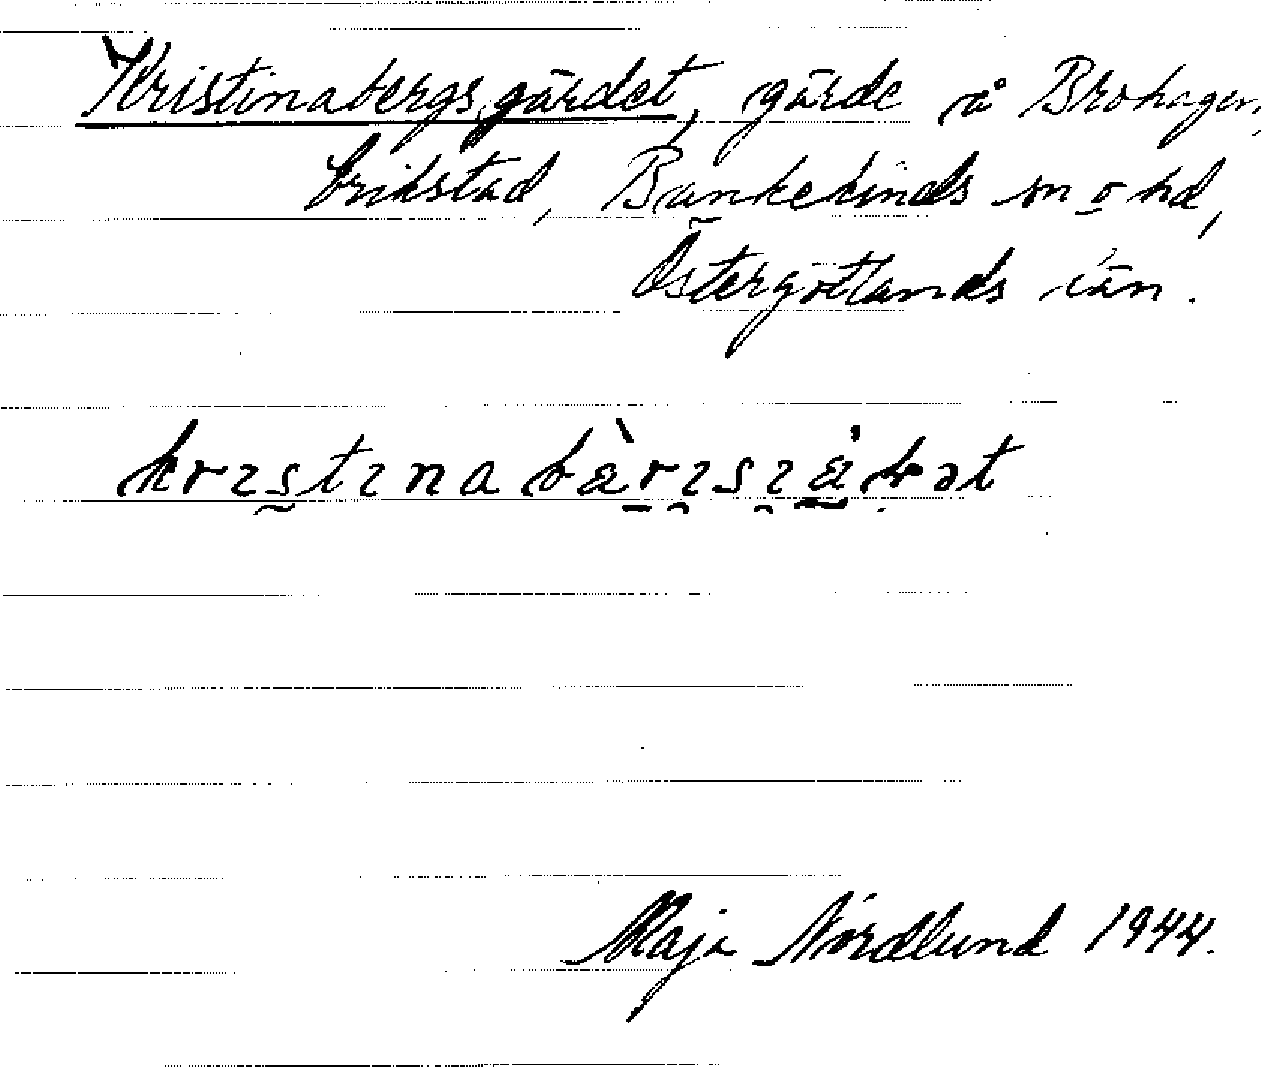 Kristinabergsgärdet, gärde å Brohagen,
Erikstad, Bankekinds sn o hd,
Östergötlands län.
Maja Nordlund 1944.